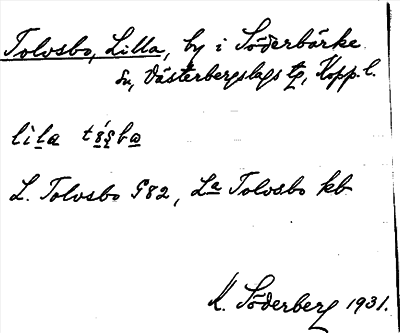 Tolvsbo, Lilla, by i Söderbärke
sn, Västerbergslags tg, Kopp. l.
lila
L. Tolvsbo G82, La Tolvsbo kb
K. Söderberg 1931.